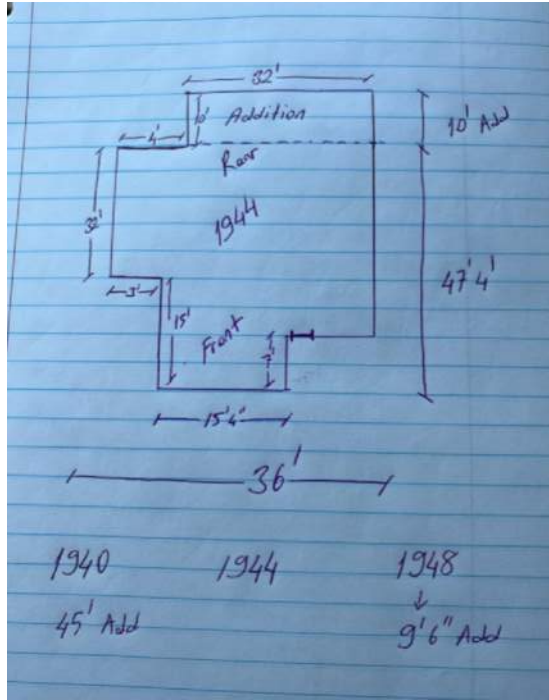 32'
10'
Addition
10' Add
4'
Rear
32'
1944
47'4'
3'
15'
Front
7'
15'4"
36'
1940 1944 1948
45' Add 9'6" Add